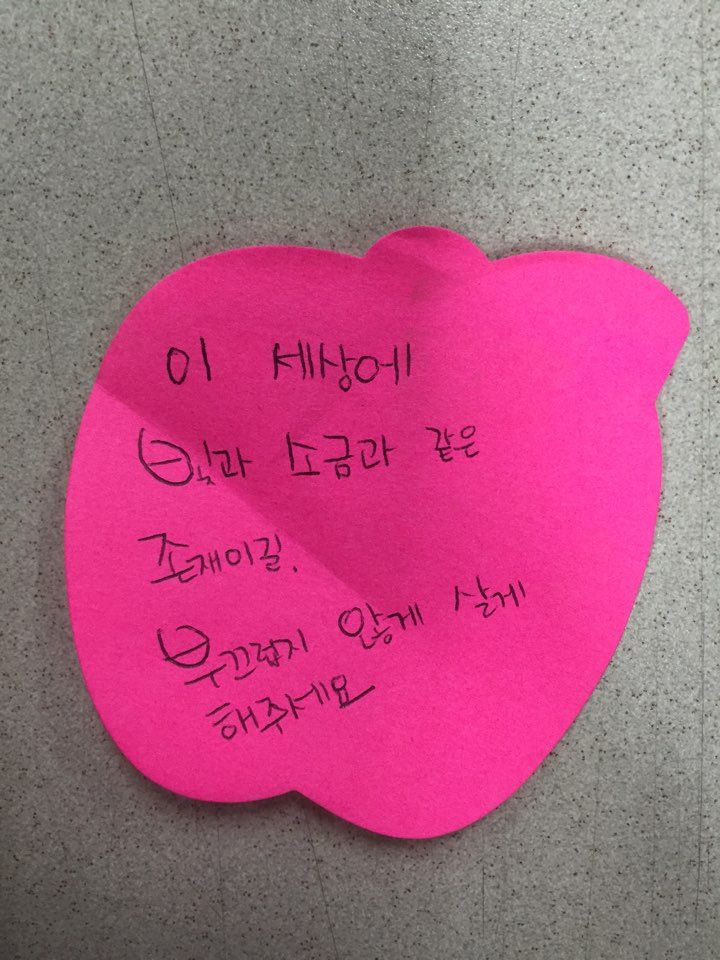 이 세상에
빛과 소금과 같은
존재이길.
부끄럽지 않게 살게
해주세요